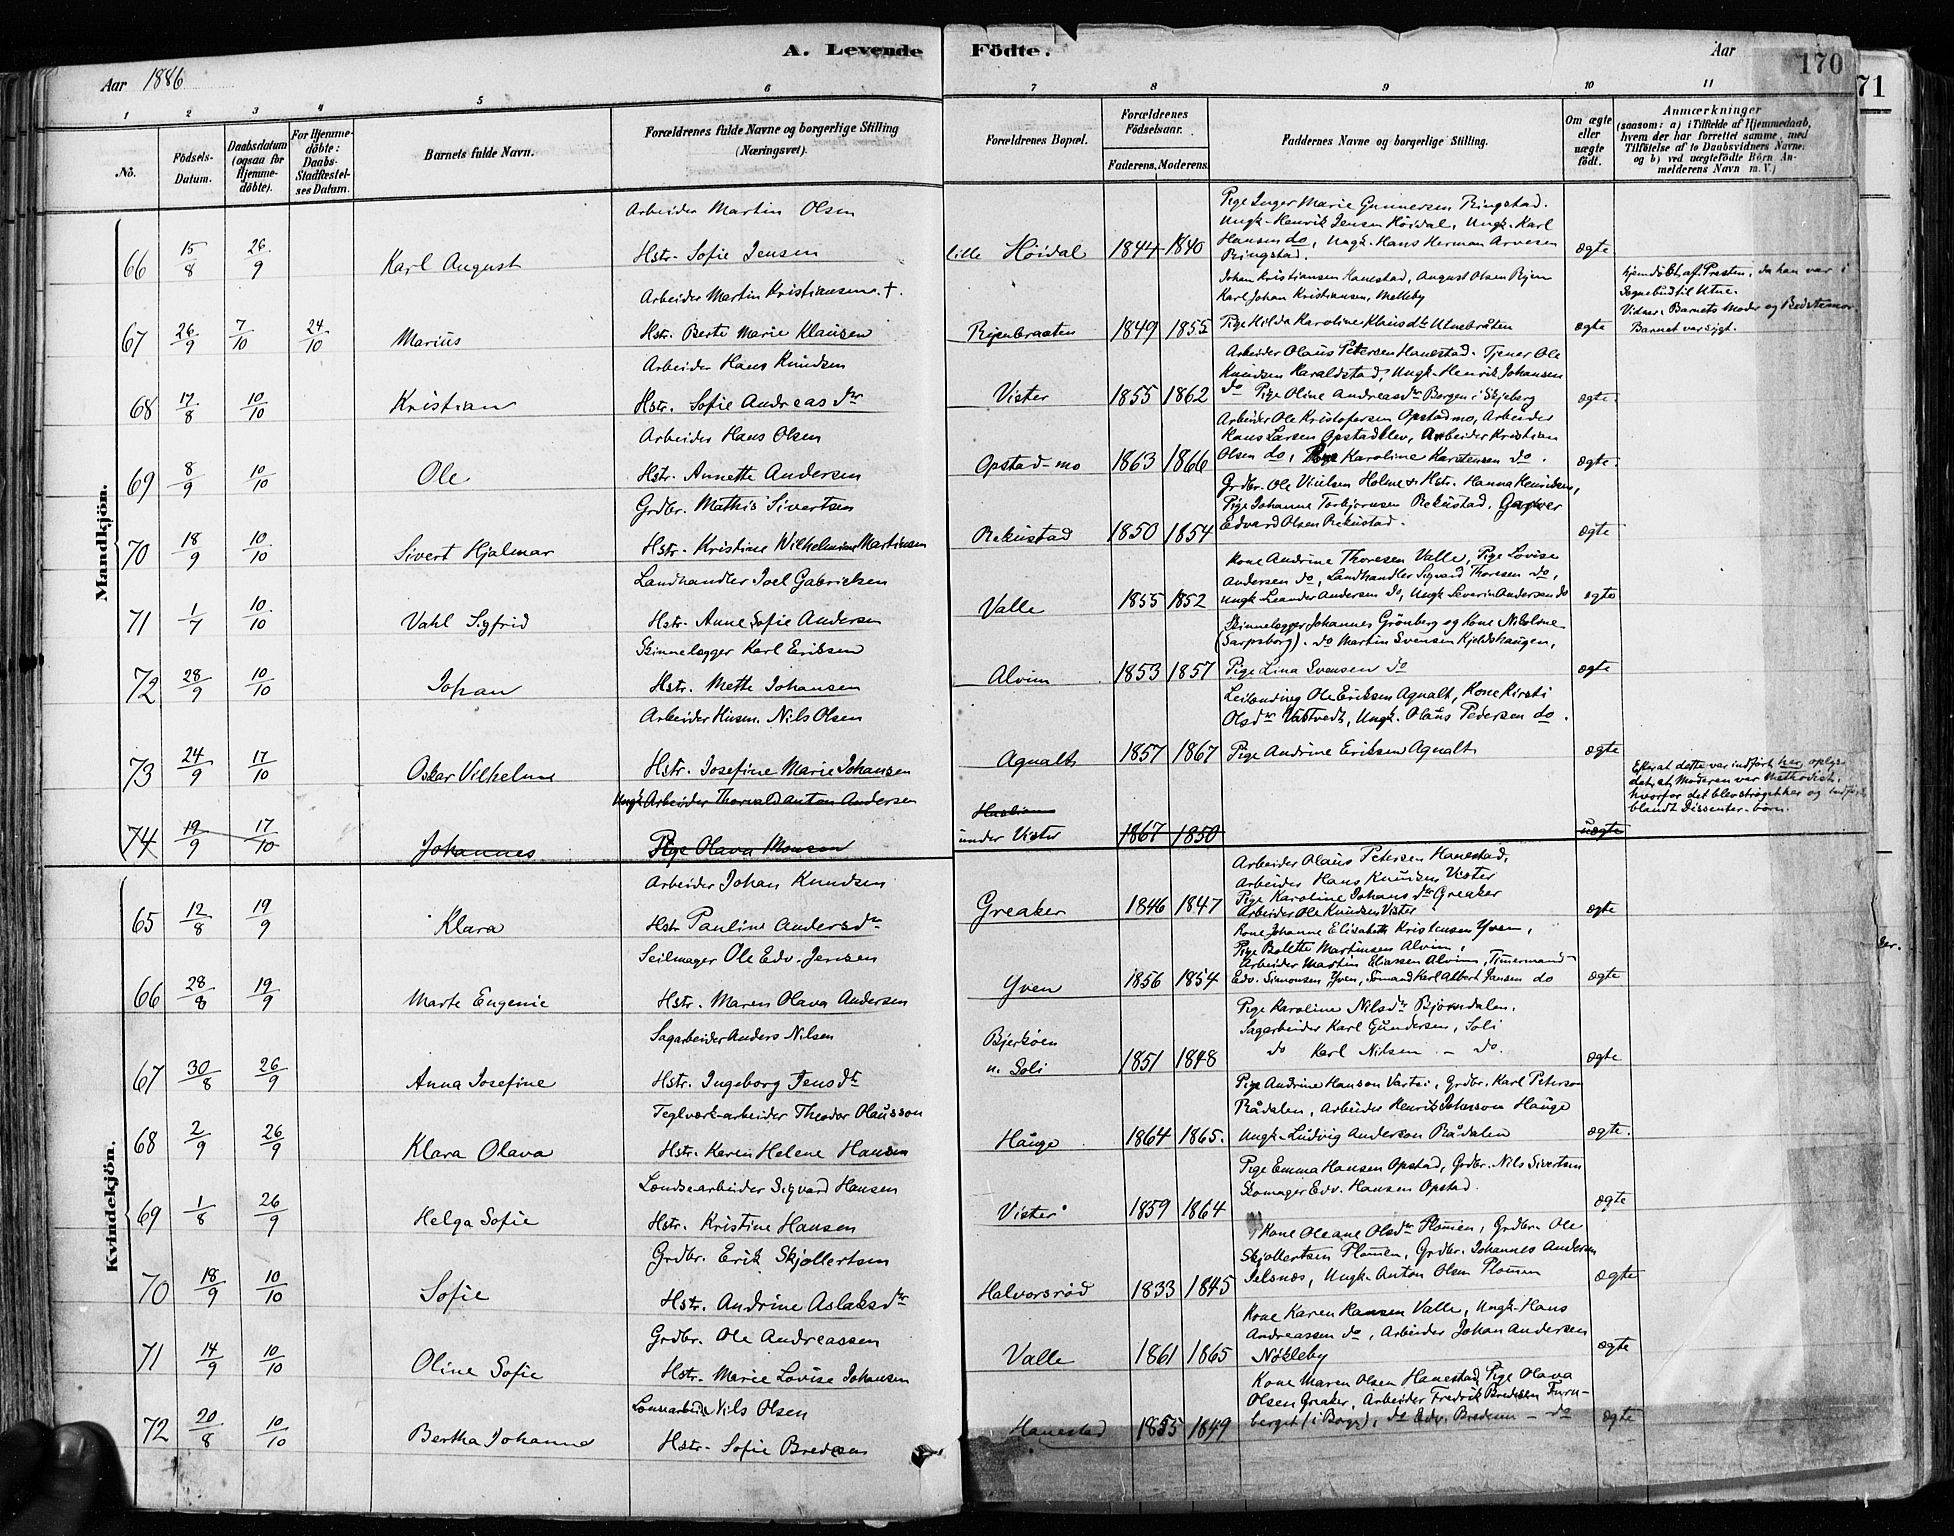 A. Levende Födte.
Aar 1886
Aar
170
71
1 2 3 4 5 6 7 8 9 10 11
No.
Födsels-Datum.
Daabsdatum (ogsaa for Hjemme-döbte).
For Hjemme-döbte: Daabs-Stadfæstel-ses Datum.
Barnets fulde Navn.
Forældrenes fulde Navne og borgerlige Stilling (Næringsvei).
Forældrenes Bopæl.
Forældrenes Födselsaar.
Faderens. Moderens.
Faddernes Navne og borgerlige Stilling.
Om ægte eller uægte födt.
Anmærkninger (saasom: a) i Tilfælde af Hjemmedaab, hvem der har forrettet samme, med Tilföielse af to Daabsvidners Navne; og b) ved uægtefödte Börn, An-melderens Navn m. V.)
Mandkjön.
66 15/8 26/9 Karl August
Arbeider Martin Olsen
Hstr. Sofie Jensen
lille Höidal 1844 1840
Pige Inger Marie Gunnersen Ringstad.
Ungk. Henrik Jensen Höidal, Ungk. Karl
Hansen do, Ungk. Hans Herman Arvesen
Ringstad.
ægte
67 26/9 7/10 24/10 Marius
Arbeider Martin Kristiansen. †.
Hstr. Berte Marie Klausen
Rijenbraaten 1849 1855
Johan Kristiansen Hanestad, August Olsen Rijen
Karl Johan Kristiansen, Melleby
Pige Hilda Karoline Klausdtr Utnebråten
ægte
hjemdöbt af Presten, da han var i
Sognebud til Utne.
Vidner: Barnets Moder og Bedstemor
Barnet var sygt.
68 17/8 10/10 Kristian
Arbeider Hans Knudsen
Hstr. Sofie Andreasdtr
Vister 1855 1862
Arbeider Olaus Petersen Hanestad. Tjener Ole
Knudsen Haraldstad, Ungk. Henrik Johansen
do Pige Oline Andreasdtr Borgen i Skjeberg
ægte
69 8/9 10/10 Ole
Arbeider Hans Olsen
Hstr. Annette Andersen
Opstad-mo 1863 1866
Arbeider Ole Kristofersen Opstadmo, Arbeider
Hans Larsen Opstadklev, Arbeider Kristian
Olsen do, Pige Karoline Karstensen do.
ægte
70 18/9 10/10 Sivert Hjalmar
Grdbr. Mathis Sivertsen
Hstr. Kristine Wilhelmine Martinsen
Rekustad 1850 1854
Grdbr. Ole Nielsen Holme & Hstr. Hanna Henriksen,
Pige Johanne Torbjörnsen Rekustad.
Edvard Olsen Rekustad.
ægte
71 1/7 10/10 Vahl Sigfrid
Landhandler Joel Gabrielsen
Hstr. Anne Sofie Andersen
Valle 1855 1852
Kone Andrine Thoresen Valle, Pige Lovise
Andersen do, Landhandler Sigvard Thoresen do,
Ungk. Leander Andersen do, Ungk. Severin Andersen do
ægte
72 28/9 10/10 Johan
Skindelægger Karl Eriksen
Hstr. Mette Johansen
Alvim 1853 1857
Skinnelægger Johannes Grönberg og Kone Nikoline
(Sarpsborg). do Martin Svensen Kjeldshaugen,
Pige Lina Svensen do
ægte
73 24/9 17/10 Oskar Vilhelm
Arbeider Husm. Nils Olsen
Hstr. Josefine Marie Johansen
Agnalt 1857 1867
Leilending Ole Eriksen Agnalt, Kone Kirsti
Olsdtr Vastvedt, Ungk. Olaus Pedersen do.
Pige Andrine Eriksen Agnalt
ægte
74 19/9 17/10 Johannes
Ungk. Arbeider Thorvald Anton Andersen
Pige Olava Monsen
under Vister 1867 1850
uægte
Efter at dette var indfört her, oplys-
des, at Moderen var Methodist,
hvorfor det blev ströget her og indfört
blandt Dissenter-börn.
Kvindekjön.
65 12/8 19/9 Klara
Arbeider Johan Knudsen
Hstr. Pauline Andersdtr
Greaker 1846 1847
Arbeider Olaus Petersen Hanestad,
Arbeider Hans Knudsen Vister
Pige Karoline Johansdtr Greaker
Arbeider Ole Knudsen Vister
ægte
66 28/8 19/9 Marte Eugenie
Seilmager Ole Edv. Jensen
Hstr. Maren Olava Andersen
Yven 1856 1854
Kone Johanne Elisabeth Kristensen Yven,
Pige Bolette Martinsen Alvim,
Arbeider Martin Eliassen Alvim, Tömermand
Edv. Simonsen Yven, Sömand Karl Albert Jansen do
ægte
67 30/8 26/9 Anna Josefine
Sagarbeider Anders Nilsen
Hstr. Ingeborg Jensdtr
Bjerköen
u. Soli 1851 1848
Pige Karoline Nilsdtr Björndalen,
Sagarbeider Karl Gundersen, Soli
do Karl Nilsen – do.
ægte
68 2/9 26/9 Klara Olava
Teglverk-arbeider Theodor Olausson
Hstr. Karen Helene Hansen
Hauge 1864 1865.
Pige Andrine Hanson Vartei, Grdbr. Karl Peterson
Rådalen, Arbeider Henrik Johanson Hauge
Ungk. Ludvig Anderson Rådalen
ægte.
69 1/8 26/9 Helga Sofie
Landsearbeider Sigvard Hansen
Hstr. Kristine Hansen
Vister 1859 1864
Pige Emma Hansen Opstad, Grdbr. Nils Sivertsen
Skomager Edv. Hansen Opstad.
ægte
70 18/9 10/10 Sofie
Grdbr. Erik Skjollertsen
Hstr. Andrine Aslaksdtr
Halvorsröd 1833 1845
Kone Oleane Olsdtr Plomen, Grdbr. Ole
Skjollertsen Plomen, Grdbr. Johannes Andersen
Selsnæs, Ungk. Anton Olsen Plomen
ægte
71 14/9 10/10 Oline Sofie
Grdbr. Ole Andreassen
Hstr. Marie Lovise Johansen
Valle 1861 1865
Kone Karen Hansen Valle, Ungk. Hans
Andreassen do, Arbeider Johan Andersen
Nökleby
ægte
72 20/8 10/10 Bertha Johanne
Nils Olsen
Hstr. Sofie Bredesen
Hanestad 1855 1849
Kone Maren Olsen Hanestad, Pige Olava
Olsen Greaker, Arbeider Fredrik Bredesen Furu-
berget (i Borge), do Edv. Bredesen – do
ægte